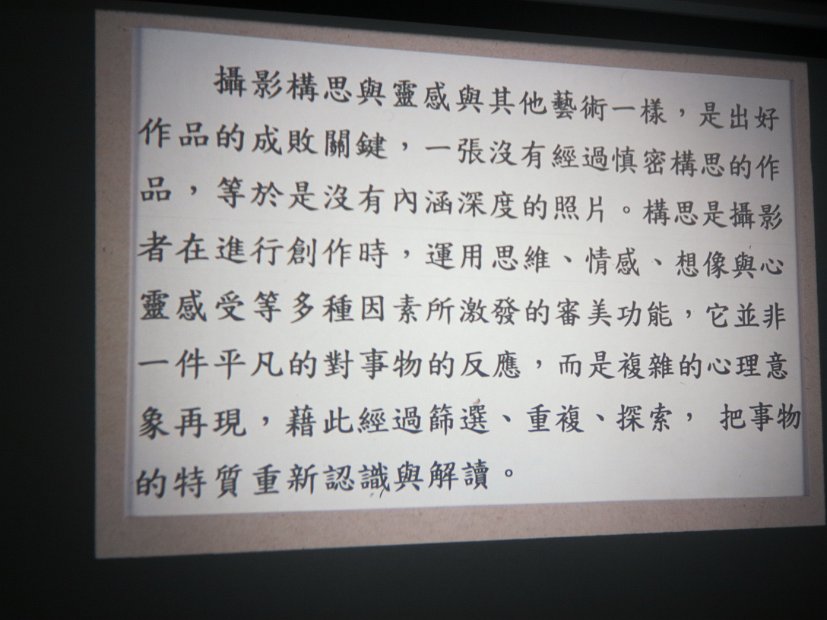 攝影構思與靈感與其他藝術一樣，是出好
作品的成敗關鍵，一張沒有經過慎密構思的作
品，等於是沒有內涵深度的照片。構思是攝影
者在進行創作時，運用思維、情感、想像與心
靈感受等多種因素所激發的審美功能，它並非
一件平凡的對事物的反應，而是複雜的心理意
象再現，藉此經過篩選、重複、探索， 把事物
的特質重新認識與解讀。